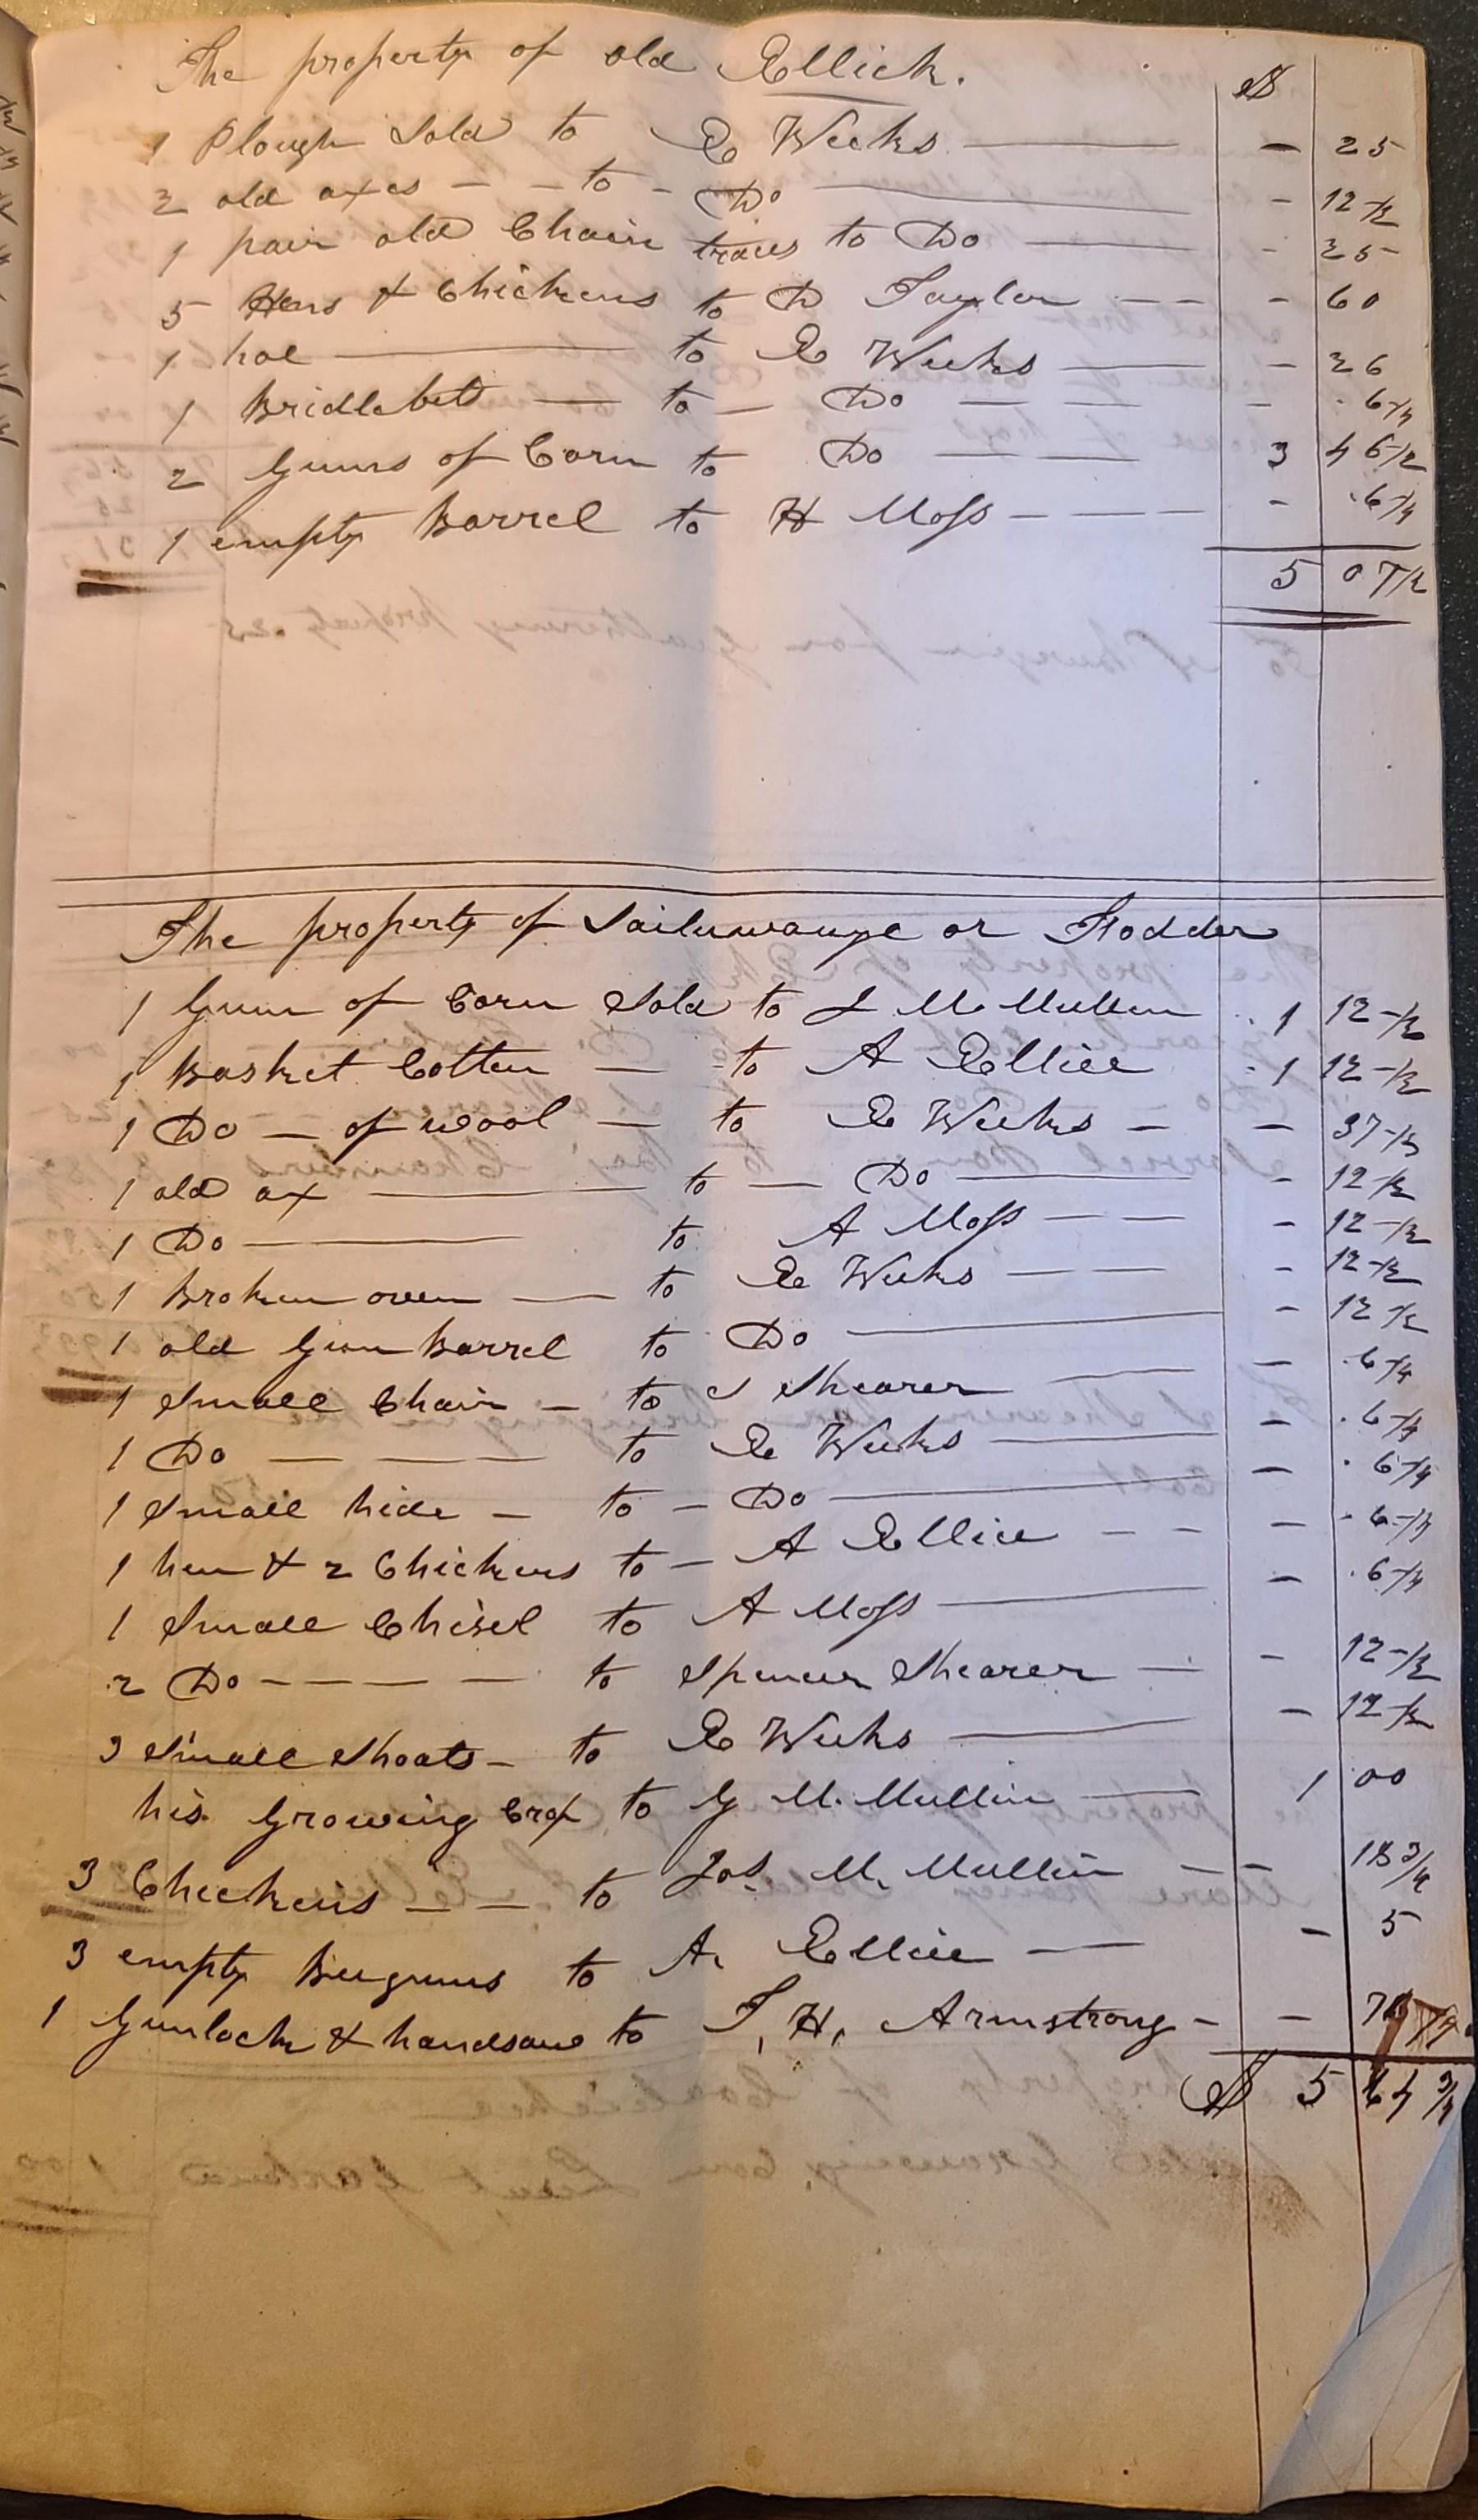 The property of old Ellick. $
1 Plough Sold to E Weeks — — 25
2 old axes — — to — Do — — 12 1/2
1 pair old Chain traces to Do — - 25
5 Hens & Chickens to D Taylor — — - 60
1 hoe — to E Weeks — - 26
1 Bridlebit — to — Do — — - 6 1/4
2 Gums of Corn to Do — — 3 46 1/2
1 empty Barrel to H Moss — — — - 6 1/4
5 07 1/2
The property of or Fodder
1 Gum of Corn Sold to J McMullen 1 12 1/2
1 Basket Cotten — to A Ellice 1 12 1/2
1 Do — of wool — to E Weeks — — 37 1/2
1 old ax — to — Do — - 12 1/2
1 Do — to A Moss — — - 12 1/2
1 Broken oven — to E Weeks — — - 12 1/2
1 old Gun Barrel to Do — - 12 1/2
1 Small Chair — to J Shearer — — 6 1/4
1 Do — — — to E Weeks — — 6 1/4
1 Small hide — to — Do — — 6 1/4
1 hen & 2 Chickens to — A Ellice — — — 6 1/4
1 Small Chisel to A Moss — — 6 1/4
2 Do — — — — to Spencer Shearer — - 12 1/2
3 Small Shoats — to E Weeks — — 12 1/2
his Growing Crop to G McMullin — 1 00
3 Chickens — — to Jos McMullin — — 18 3/4
3 empty Beegums to A. Ellice — — 5
1 Gunlock & handsaw to T. H. Armstrong — —
$ 5 64 3/4